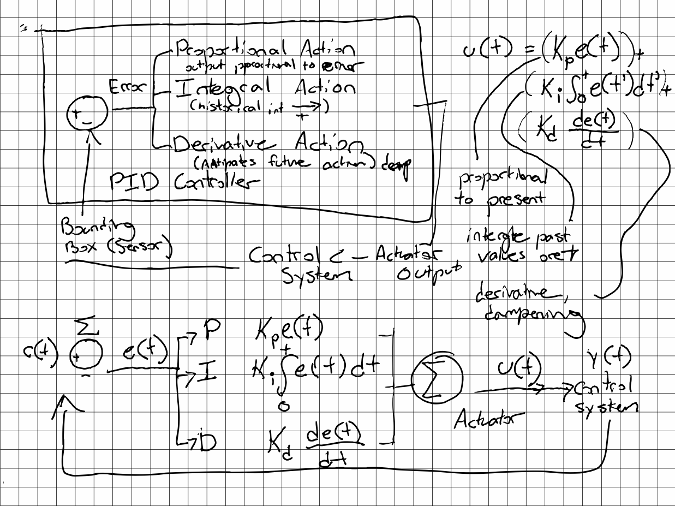 Proportional Action
output proportional to error
Error
Integral Action
(historical int → )
t
+ -
Derivative Action
(Antipates future action) damp
PID Controller
Bounding
Box (Sensor)
Control < - Actuator
System Output
u(t) = (Kp e(t)) +
(Ki ∫₀ᵗ e(t')dt') +
(Kd de(t)/dt)
proportional
to present
past
values
derivative,
dampening
Σ
r(t) + - e(t)
P Kp e(t)
I Ki ∫₀ᵗ e(t) dt
D Kd de(t)/dt
Σ
u(t)
Actuator
y(t)
Control
system